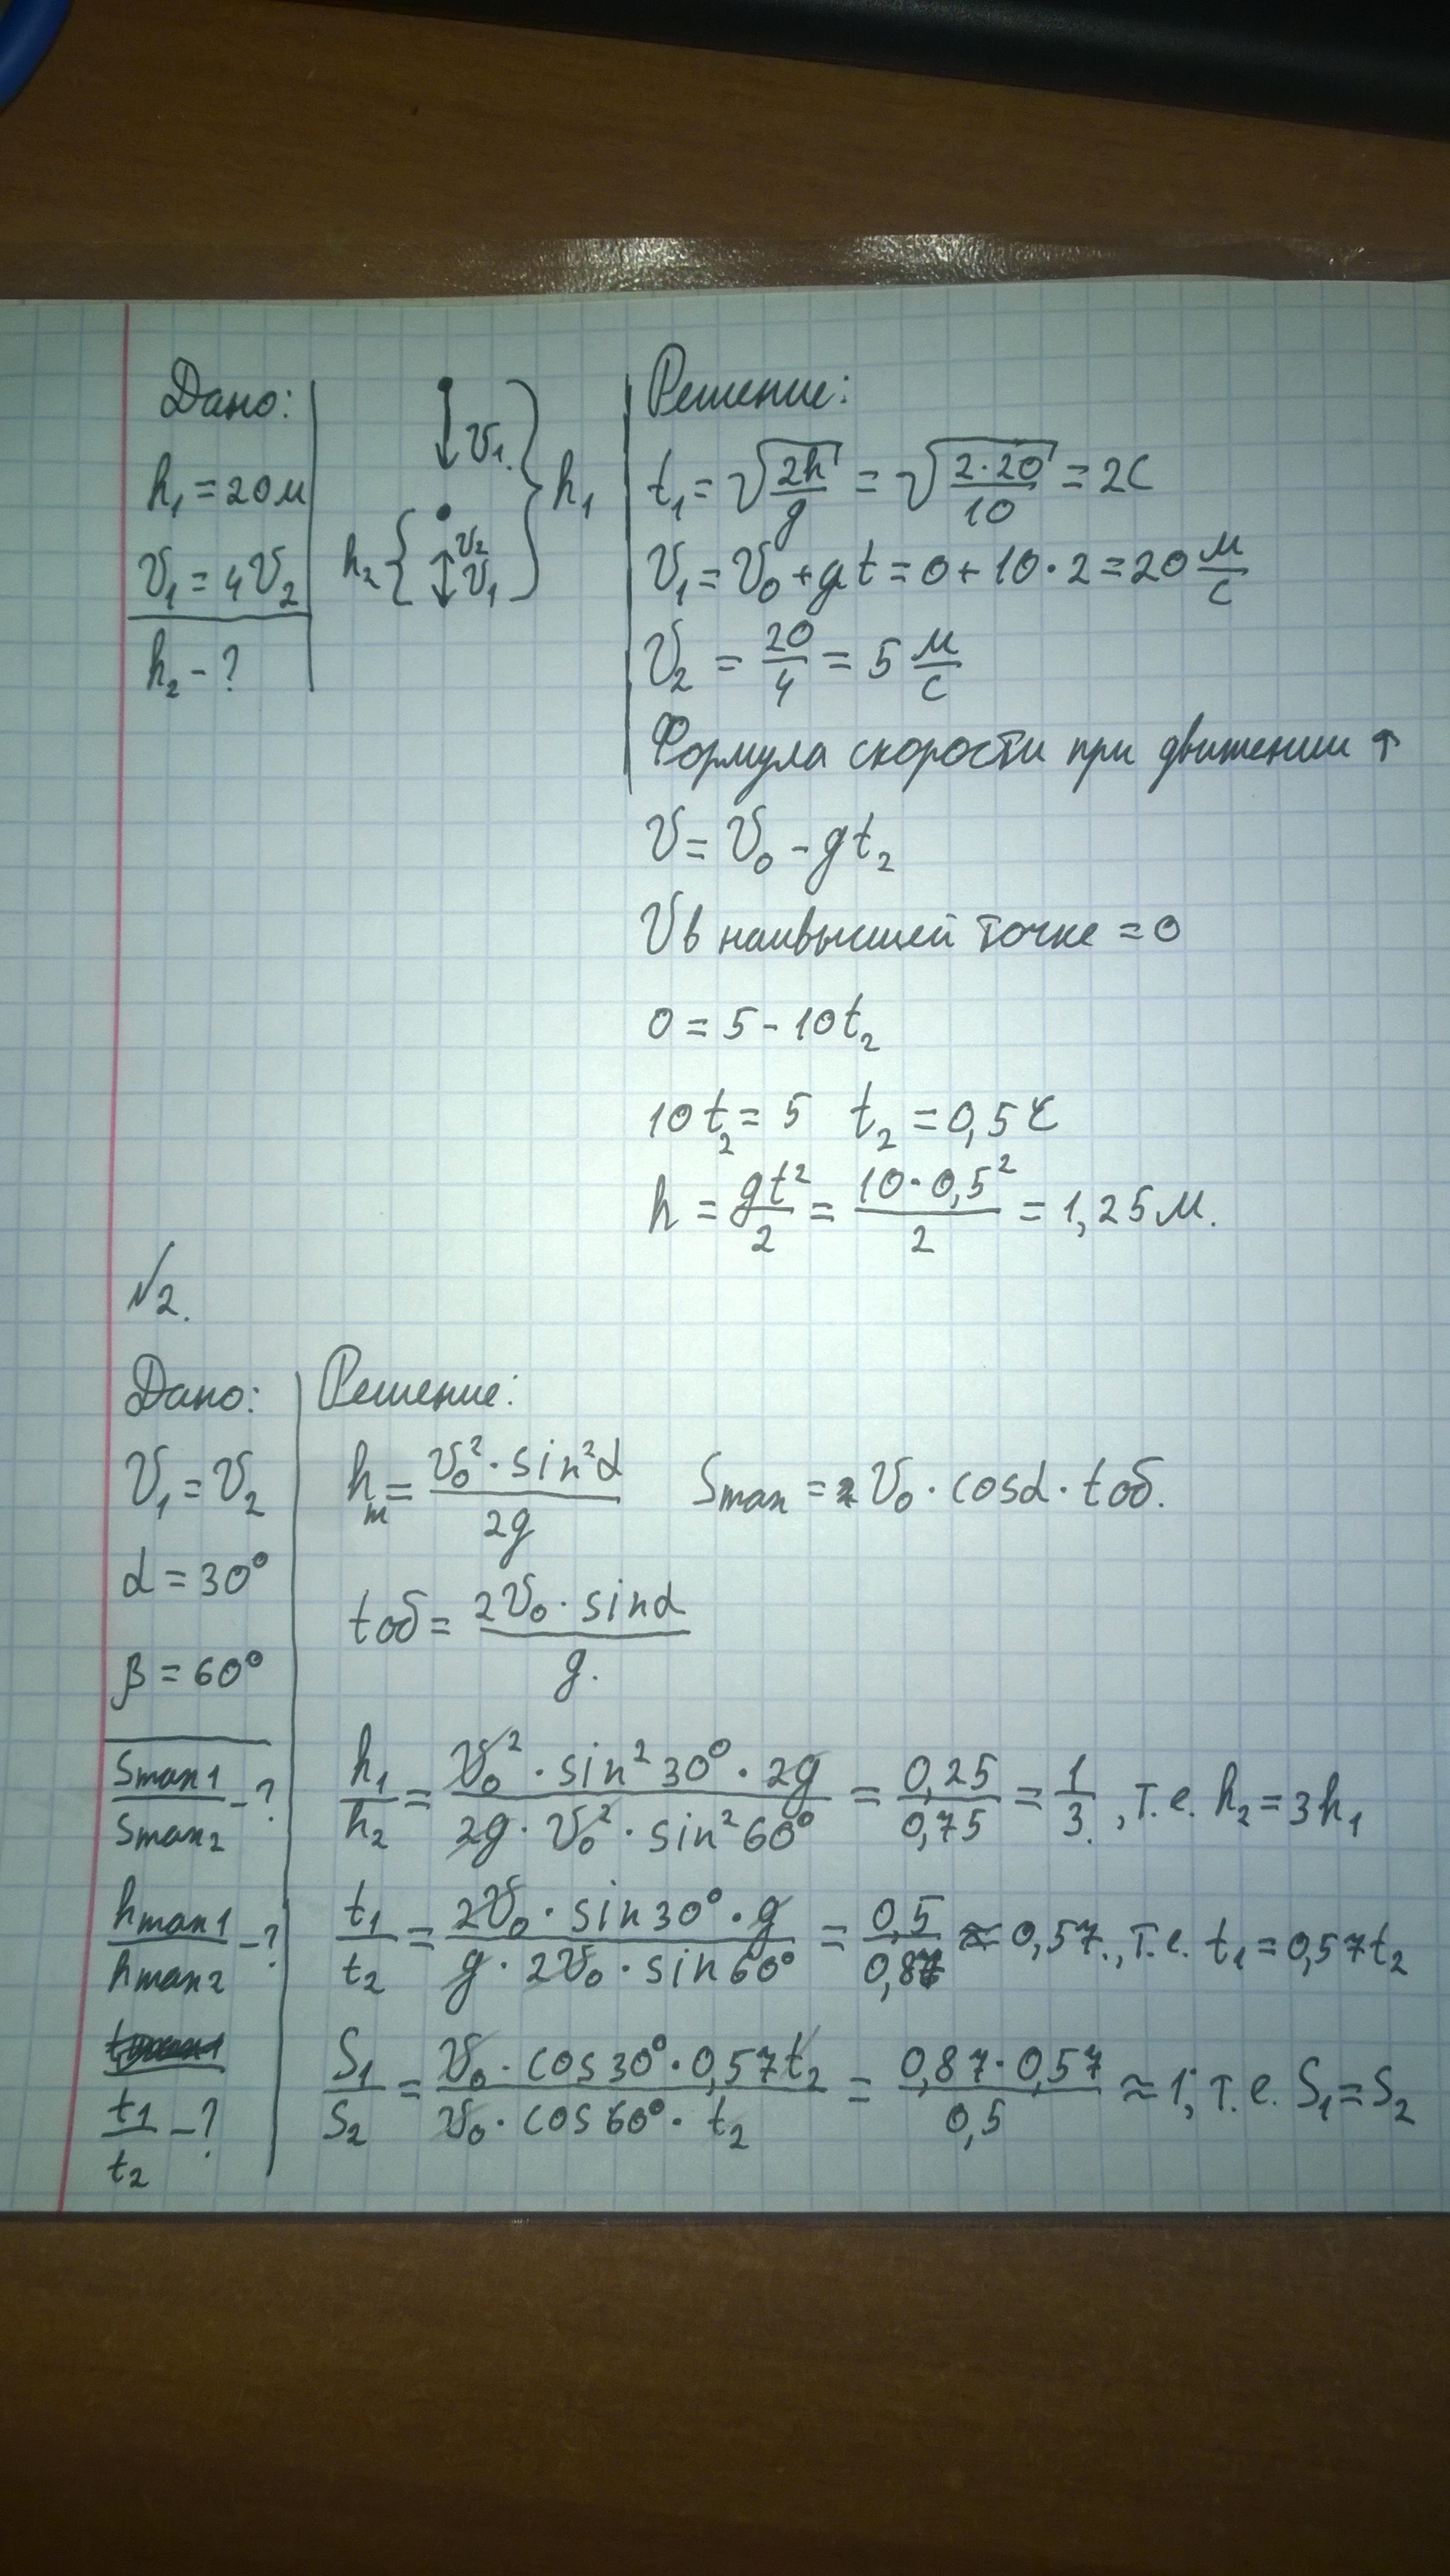 Дано:
h₁ = 20м
V₁ = 4V₂
h₂ - ?
V₁
h₁
h₂
V₂
V₁
Решение:
t₁ = √(2h/g) = √(2·20/10) = 2с
V₁ = V₀ + gt = 0 + 10·2 = 20 м/с
V₂ = 20/4 = 5 м/с
Формула скорости при движении ↑
V = V₀ - gt₂
V в наивысшей точке = 0
0 = 5 - 10t₂
10t₂ = 5 t₂ = 0,5 с
h = gt²/2 = 10·0,5²/2 = 1,25м.
№2.
Дано:
V₁ = V₂
α = 30°
β = 60°
Smax1/Smax2 - ?
hmax1/hmax2 - ?
t₁/t₂ - ?
Решение:
hm = V₀²·sin²α/2g Smax = V₀·cosα·tоб.
tоб = 2V₀·sinα/g.
h₁/h₂ = V₀²·sin²30°·2g/2g·V₀²·sin²60° = 0,25/0,75 = 1/3, т.е. h₂ = 3h₁
t₁/t₂ = 2V₀·sin30°·g/g·2V₀·sin60° = 0,5/0,87 ≈ 0,57., т.е. t₁ = 0,57t₂
S₁/S₂ = V₀·cos30°·0,57t₂/V₀·cos60°·t₂ = 0,87·0,57/0,5 ≈ 1, т.е. S₁ = S₂